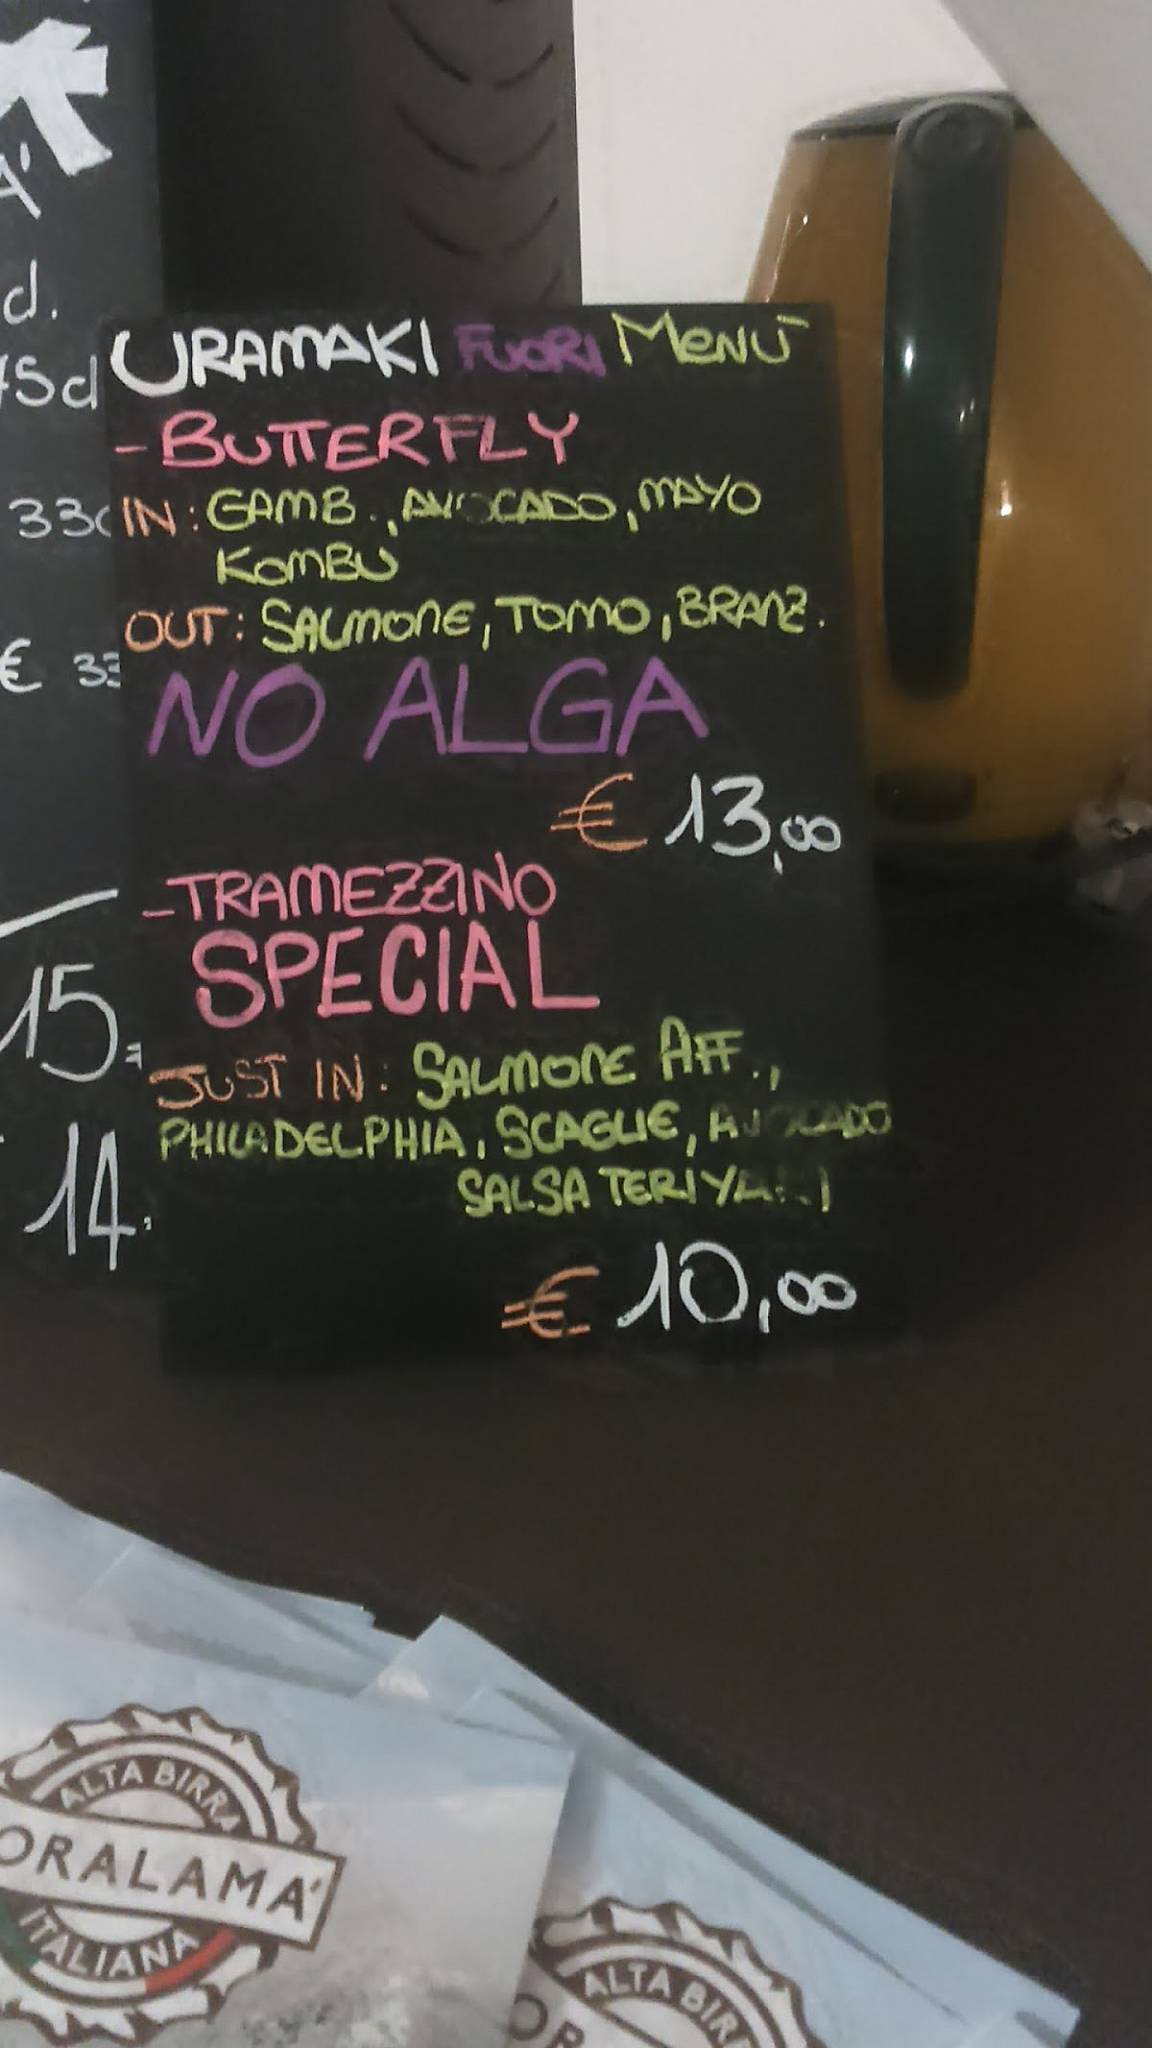 URAMAKI FUORI MENÙ
- BUTTERFLY
IN: GAMB., AVOCADO, MAYO
KOMBU
OUT: SALMONE, TONNO, BRANZ.
NO ALGA
€ 13,00
- TRAMEZZINO
SPECIAL
JUST IN: SALMONE AFF.,
PHILADELPHIA, SCAGLIE, AVOCADO
SALSA TERIYAKI
€ 10,00
d.
75d
33c
€ 33
15.=
14.
ALTA BIRRA
ORALAMA'
ITALIANA
ALTA BIRR
OR